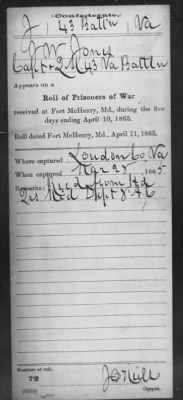 (Confederate.)
J 43 Battn Va
J W Jones
Capt & 2 M 43 Va Battln
Appears on a
Roll of Prisoners of War
received at Fort McHenry, Md., during the five
days ending April 10, 1865.
Roll dated Fort McHenry, Md., April 11, 1865.
Where captured Loudon Co, Va
When captured Mar 25, 1865.
Remarks: from
Med Dept 8" A C
Number of roll:
72
Copyist.